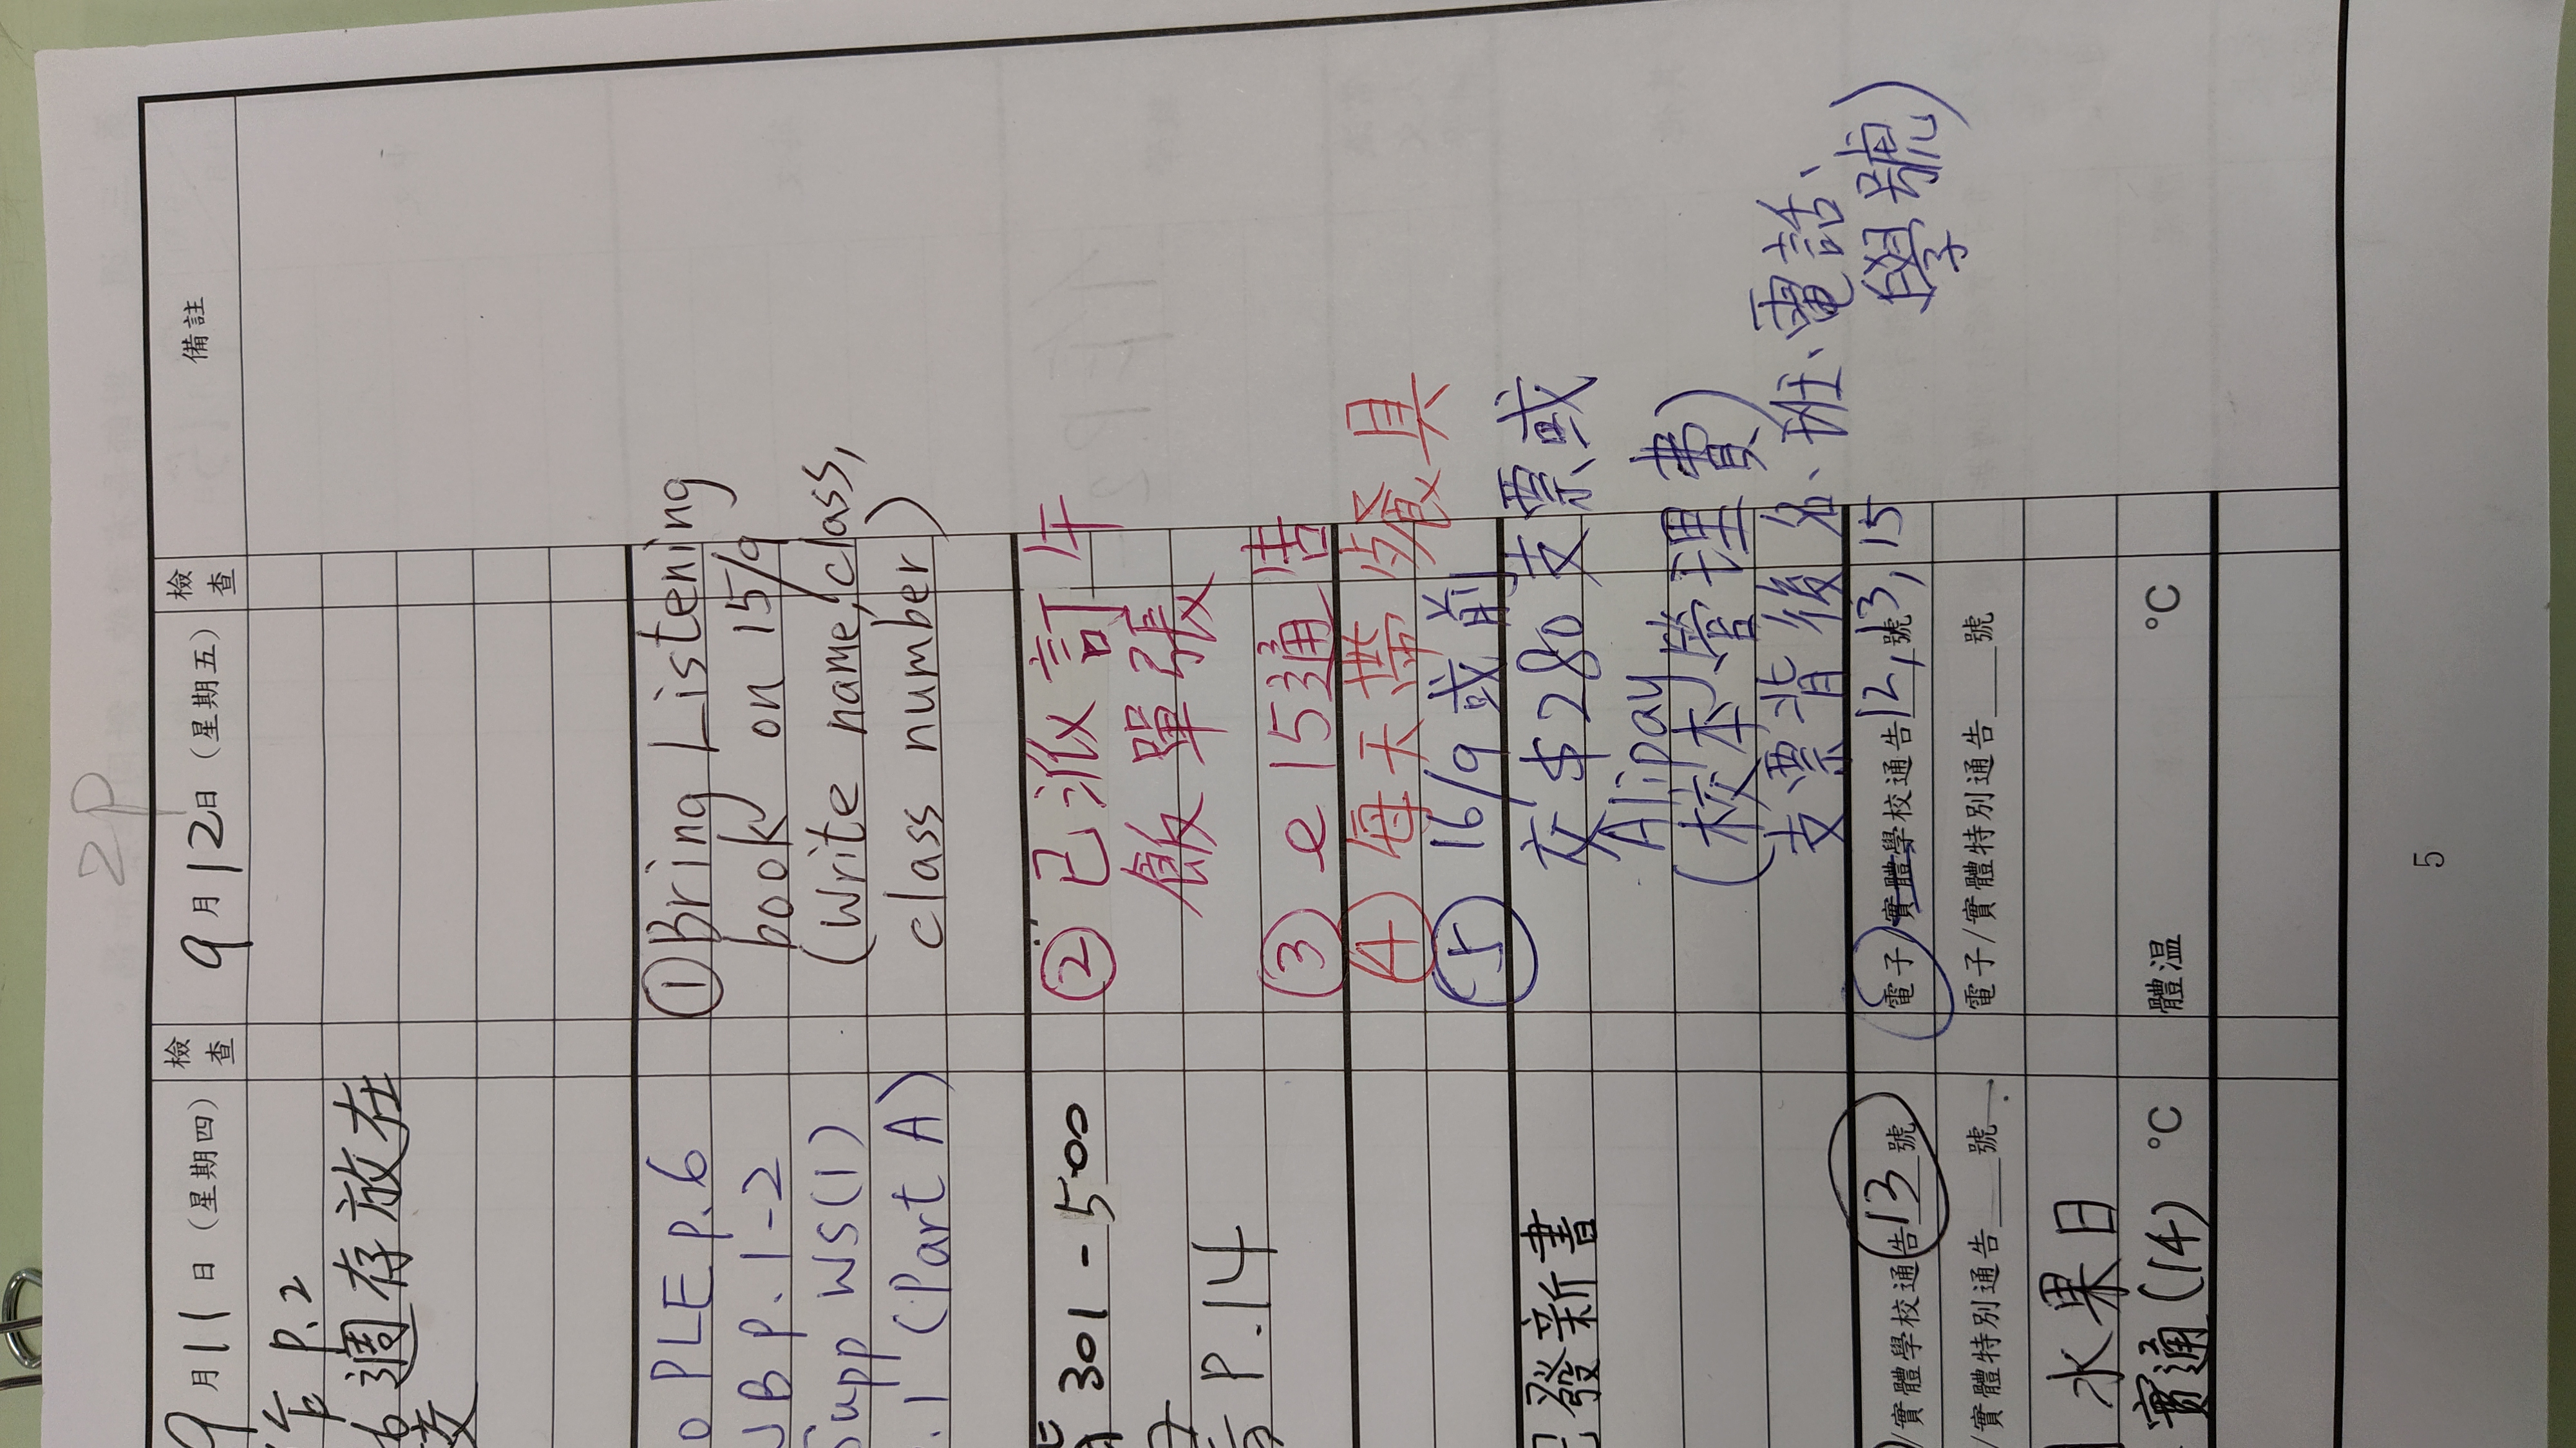 2P
9月11日（星期四）
檢查
9月12日（星期五）
檢查
備註
P.2
週存放在
PLE p.6
P.1-2
Supp WS(1)
P.1 (Part A)
301-500
P.14
已發新書
/實體學校通告13號
/實體特別通告___號
水果日
實通(14)
°C
① Bring Listening
book on 15/9
(write name, class,
class number)
② 已派訂午
飯單張
③ e 153通告
④ 每天帶餐具
⑤ 16/9或前
交$280支票或
Alipay
(校本管理費)
支票背後名、班、電話、
學號)
電子/實體學校通告12,號13,15
電子/實體特別通告___號
體温
°C
5